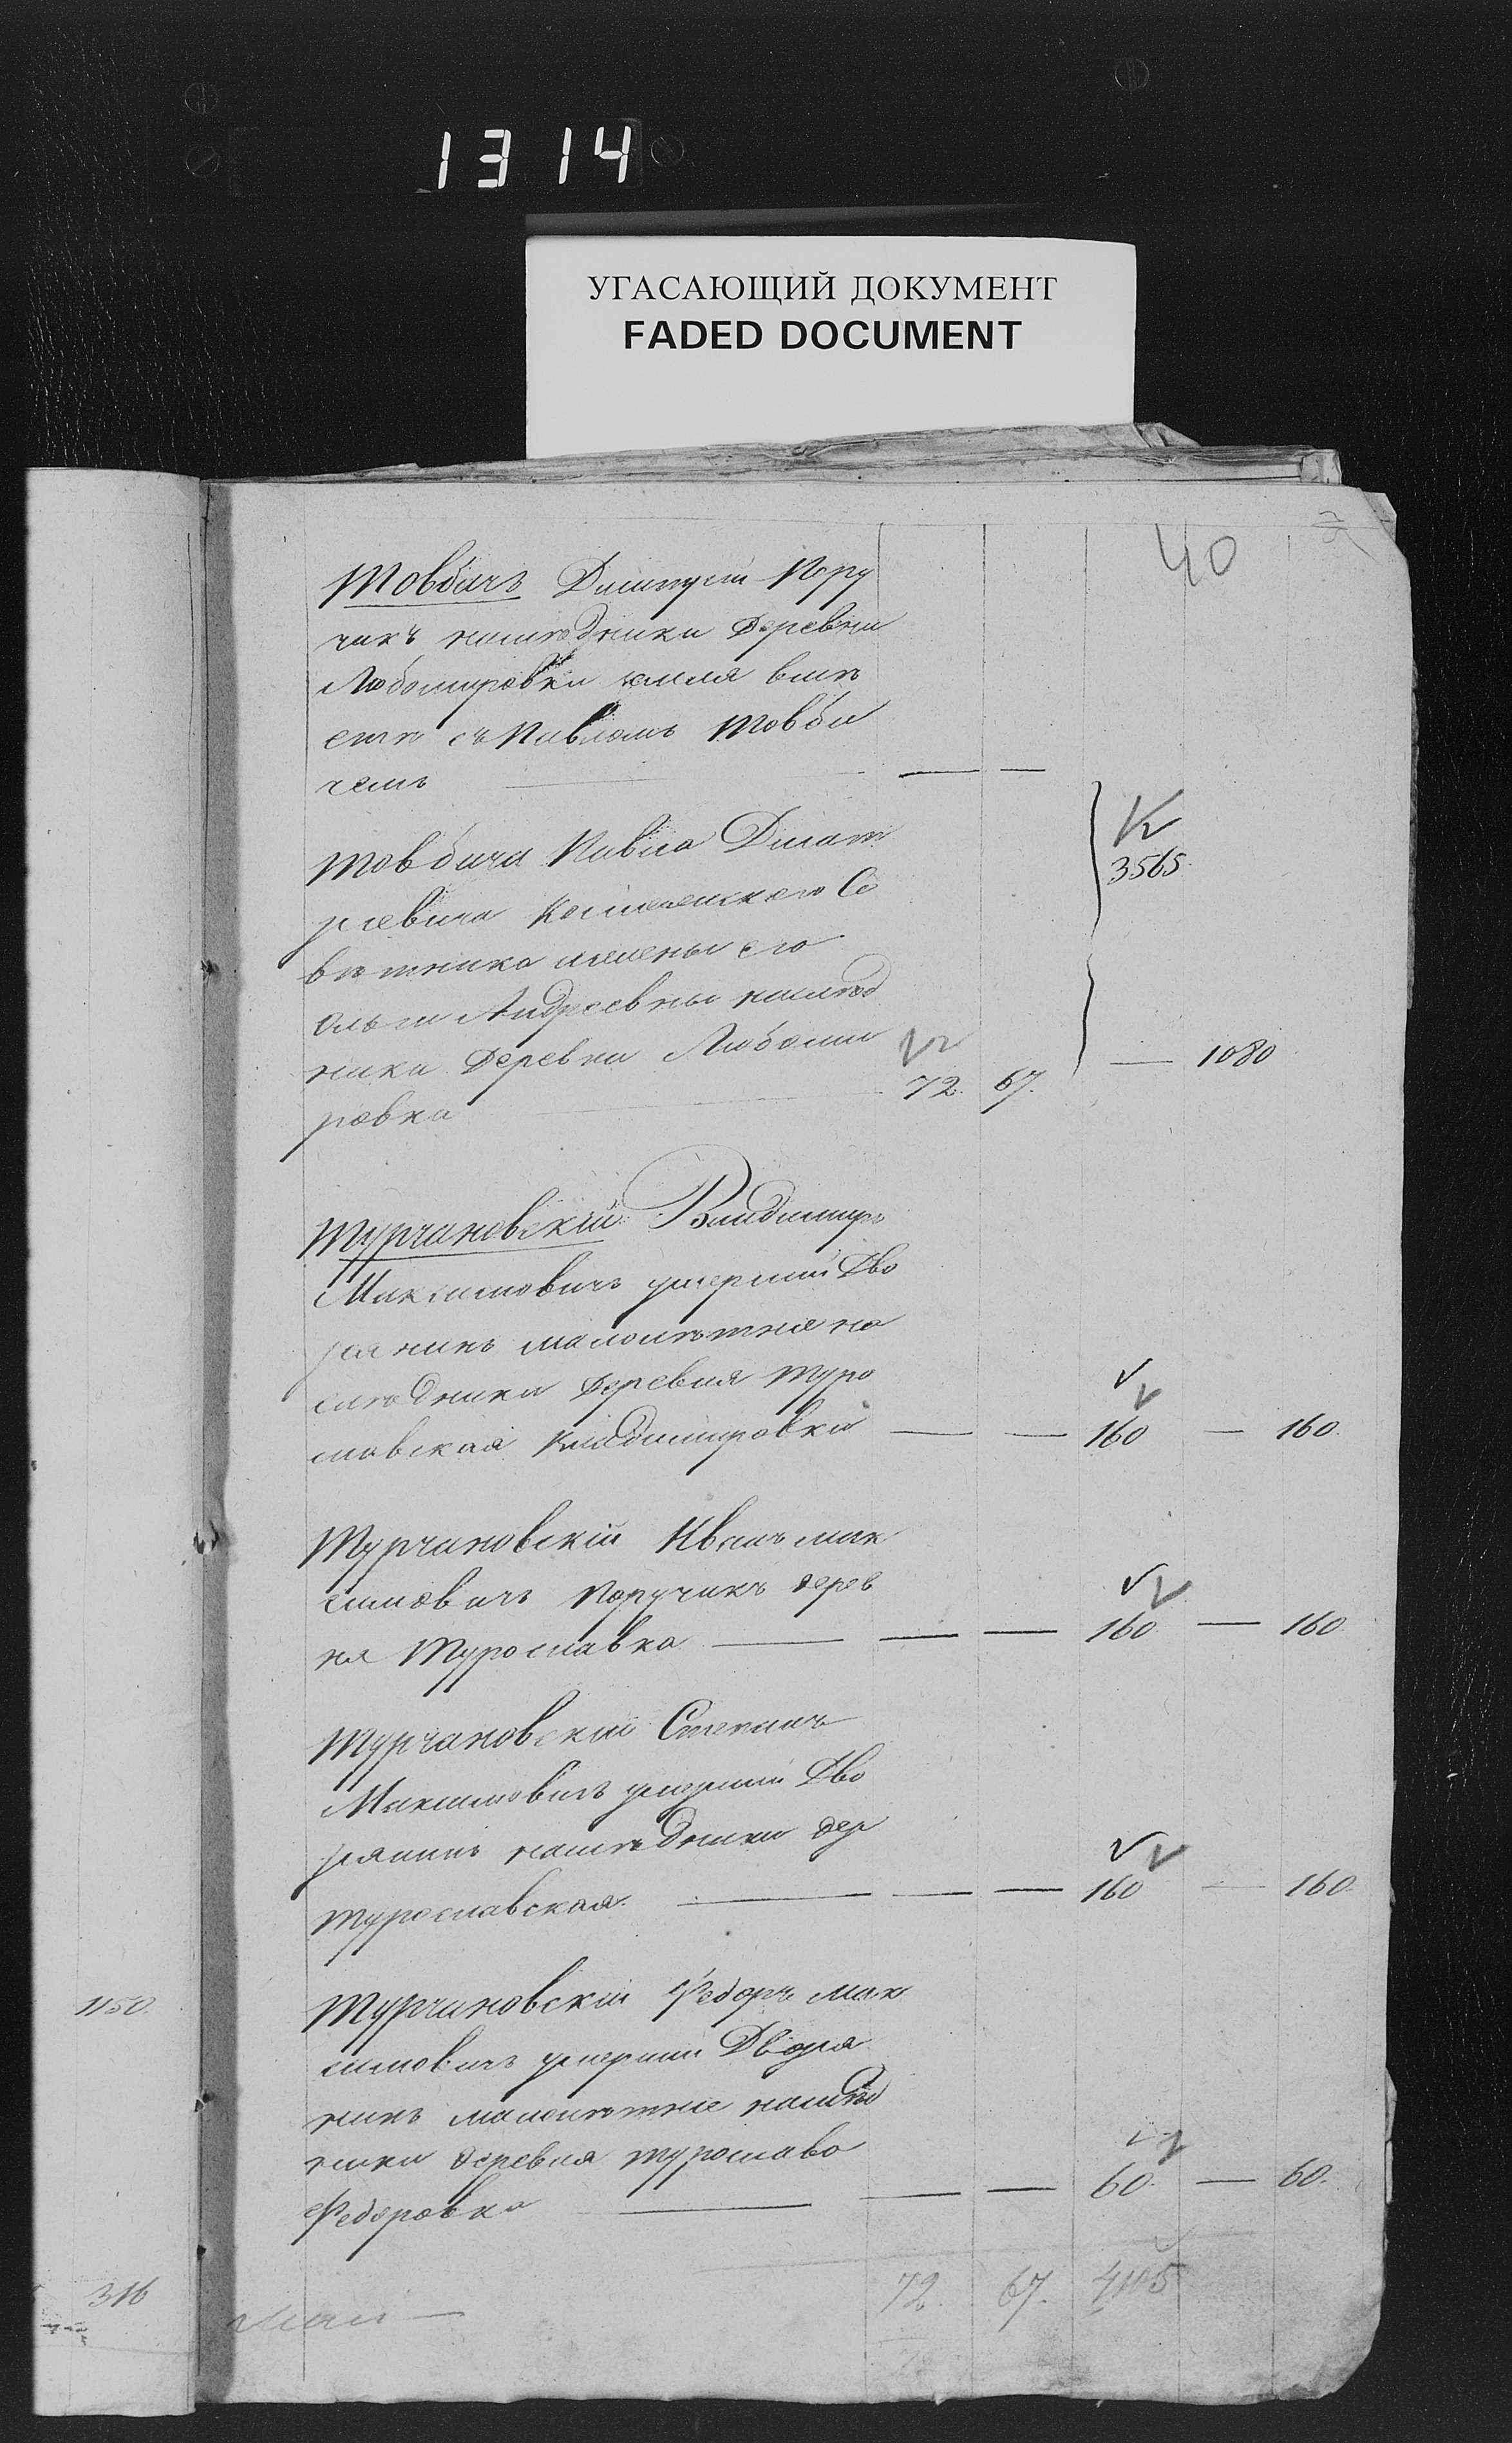 1314
УГАСАЮЩИЙ ДОКУМЕНТ
FADED DOCUMENT
40
Товбичъ Дмитрій Пору
чикъ наслѣдники Деревни
Любомировки земля вмѣ
стѣ съ Павломъ Товби
чемъ — —
Товбича Павла Дмит
ріевича Со
3565
вѣтника жены его
Ольги Андреевны наслѣд
ники Деревни Любоми
ровка 72. 67. — 1080
Турчановскій Владимиръ
Максимовичъ умершій Дво
рянинъ малолѣтніе на
слѣдники Деревня Туро
славская Владимировка — — 160 — 160.
Турчановскій Иванъ Мак
симовичъ Поручикъ дерев
ня Турославка — — — 160 — 160
Турчановскій Степанъ
Максимовичъ умершій Дво
рянинъ наслѣдники дер
Турославская — — — 160 — 160.
1150.
Турчановскій Федоръ Мак
симовичъ умершій Дворя
нинъ малолѣтніе наслѣд
ники деревня Турославо
Федоровка — — — 60. — 60.
316
72. 67. 4105